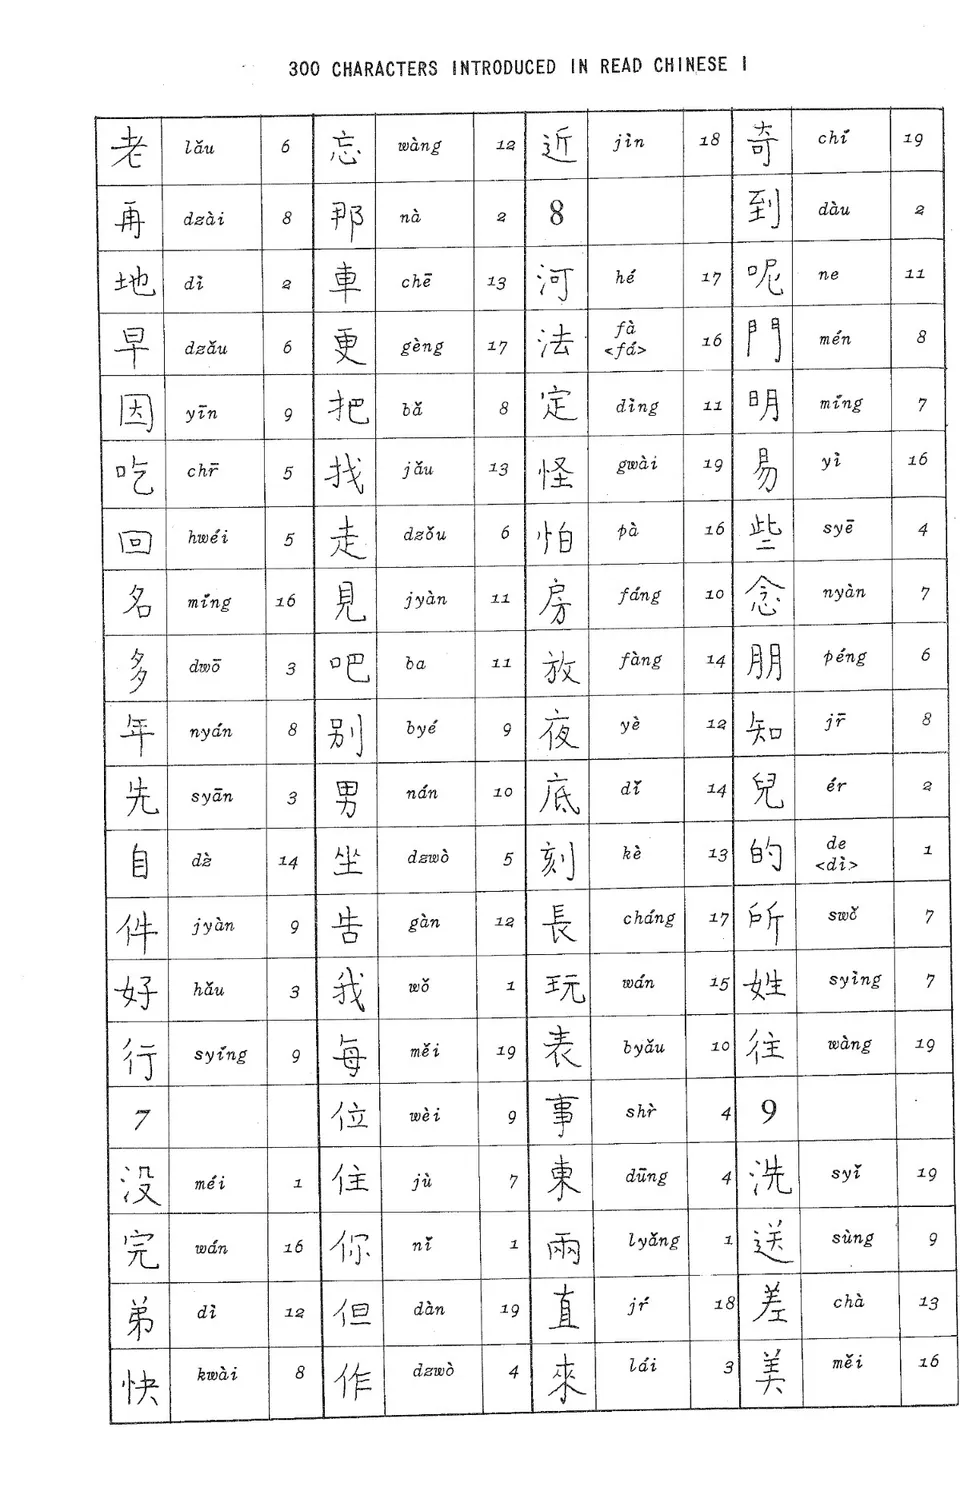 300 CHARACTERS INTRODUCED IN READ CHINESE I
老 lǎu 6
再 dzài 8
地 dì 2
早 dzǎu 6
因 yīn 9
吃 chr̄ 5
回 hwéi 5
名 míng 16
多 dwō 3
年 nyán 8
先 syān 3
自 dz̀ 14
件 jyàn 9
好 hǎu 3
行 syíng 9
7
没 méi 1
完 wán 16
弟 dì 12
快 kwài 8
忘 wàng 12
那 nà 2
車 chē 13
更 gèng 17
把 bǎ 8
找 jǎu 13
走 dzǒu 6
見 jyàn 11
吧 ba 11
別 byé 9
男 nán 10
坐 dzwò 5
告 gàu 12
我 wǒ 1
每 měi 19
位 wèi 9
住 jù 7
你 nǐ 1
但 dàn 19
作 dzwò 4
近 jìn 18
8
河 hé 17
法 fà <fá> 16
定 dìng 11
怪 gwài 19
怕 pà 16
房 fáng 10
放 fàng 14
夜 yè 12
底 dǐ 14
刻 kè 13
長 cháng 17
玩 wán 15
表 byǎu 10
事 shr̀ 4
東 dūng 4
兩 lyǎng 1
直 jŕ 18
來 lái 3
奇 chí 19
到 dàu 2
呢 ne 11
門 mén 8
明 míng 7
易 yì 16
些 syē 4
念 nyàn 7
朋 péng 6
知 jr̄ 8
兒 ér 2
的 de <dì> 1
所 swǒ 7
姓 syìng 7
往 wàng 19
9
洗 syǐ 19
送 sùng 9
差 chà 13
美 měi 16